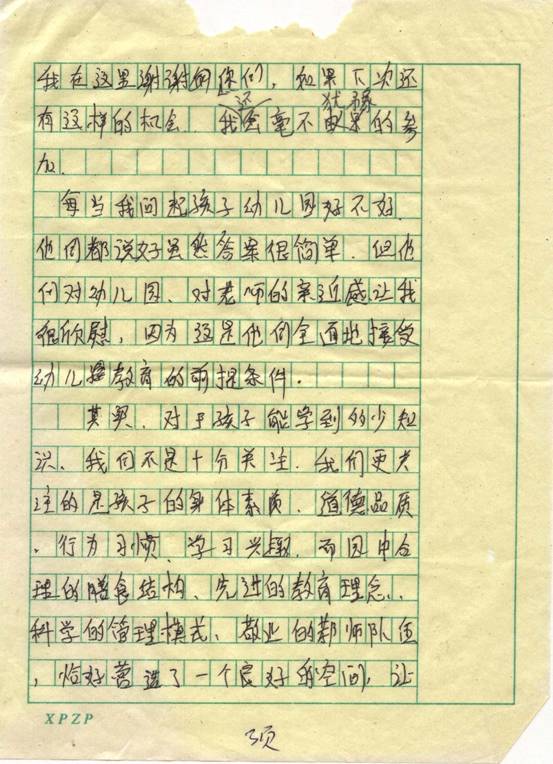 我在这里谢谢你们，如果下次还
还 犹豫
有这样的机会 我会毫不 的参
加.
每当我问起孩子幼儿园好不好.
他们都说好虽然答案很简单.但他
们对幼儿园、对老师的亲近感让我
很欣慰，因为这是他们全面地接受
幼儿 教育的前提条件.
其实.对于孩子能学到多少知
识、我们不是十分关注.我们更关
注的是孩子的身体素质、道德品质
、行为习惯、学习兴趣.而园中合
理的膳食结构、先进的教育理念、
科学的管理模式、敬业的教师队伍
，恰好营造了一个良好的空间，让
XPZP
3页